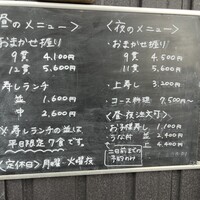 昼のメニュー〉
おまかせ握り
9貫 4.100円
12貫 5.600円
寿しランチ
並 1.600円
中 2.600円
※寿しランチの並は
平日限定7食です。
〈定休日〉月曜・火曜夜
〈夜のメニュー〉
・おまかせ握り
9貫 4.500円
12貫 6.000円
・上寿し 3.200円
・コース料理 7.500円〜
〈昼・夜注文可〉
お子様寿し 1.100円
うな丼 並 2.400円
上 4.400円
二日前までの
予約のみ